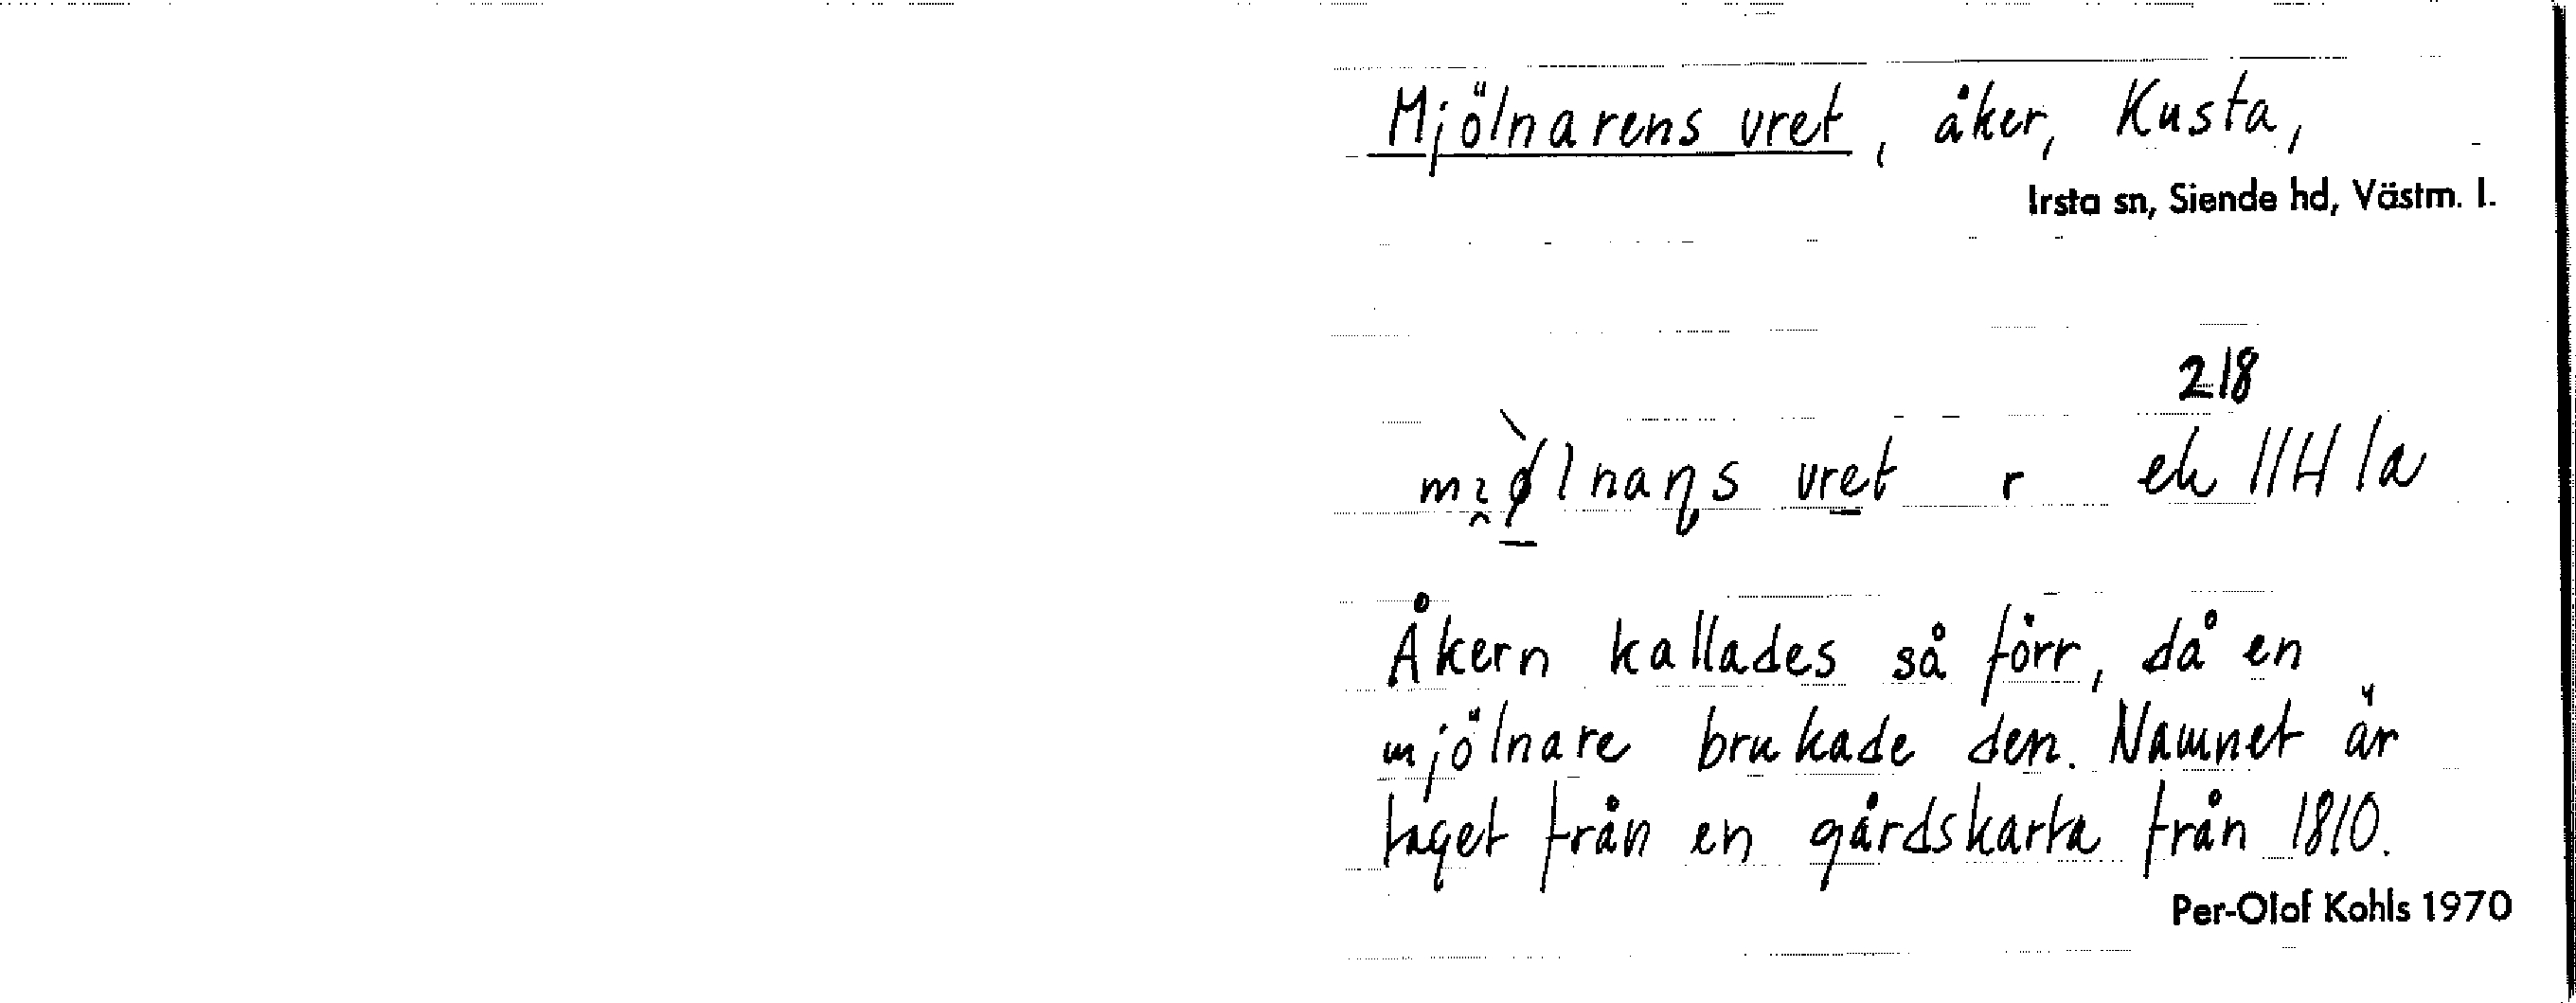 Mjölnarens vret, åker, Kusta,
Irsta sn, Siende hd, Västm. l.
218
vret r ek 11H 1a
Åkern kallades så förr, då en
mjölnare brukade den. Namnet är
taget från en gårdskarta från 1810.
Per-Olof Kohls 1970